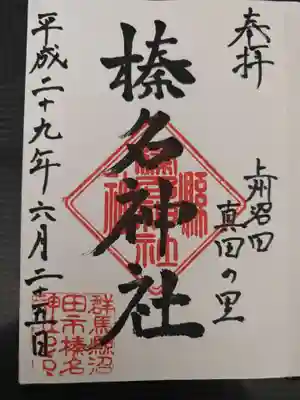 奉拝
上州沼田
真田の里
榛名神社
平成二十九年六月二十五日
群馬縣沼
田市榛名
神社之印